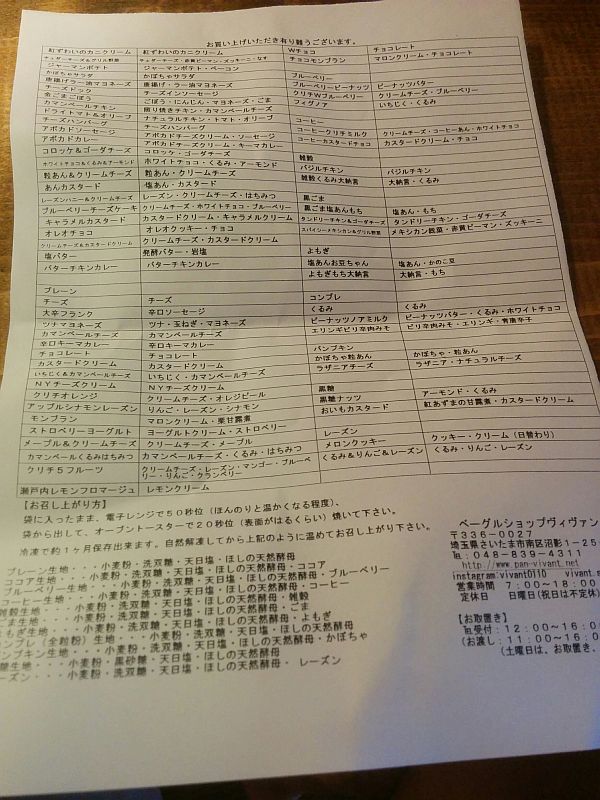 お買い上げいただき有り難うございます。
紅ずわいのカニクリーム 紅ずわいのカニクリーム Wチョコ チョコレート
チェダーチーズ&グリル野菜 チェダーチーズ・赤黄ピーマン・ズッキーニ・なす チョコモンブラン マロンクリーム・チョコレート
ジャーマンポテト ジャーマンポテト・ベーコン
かぼちゃサラダ かぼちゃサラダ ブルーベリー
唐揚げラー油マヨネーズ 唐揚げ・ラー油マヨネーズ ブルーベリーピーナッツ ピーナッツバター
チーズドック チーズインソーセージ クリチWブルーベリー クリームチーズ・ブルーベリー
金ごまごぼう ごぼう・にんじん・マヨネーズ・ごま フィグノア いちじく・くるみ
カマンベールチキン 照り焼きチキン・カマンベールチーズ
ドライトマト&オリーブ ナチュラルチキン・トマト・オリーブ コーヒー
チーズハンバーグ チーズハンバーグ コーヒークリチミルク クリームチーズ・コーヒーあん・ホワイトチョコ
アボカドソーセージ アボカドチーズクリーム・ソーセージ コーヒーカスタードチョコ カスタードクリーム・チョコ
アボカドカレー アボカドチーズクリーム・キーマカレー
コロッケ&ゴーダチーズ コロッケ・ゴーダチーズ 雑穀
ホワイトチョコ&くるみ&アーモンド ホワイトチョコ・くるみ・アーモンド バジルチキン バジルチキン
粒あん&クリームチーズ 粒あん・クリームチーズ 雑穀くるみ大納言 大納言・くるみ
あんカスタード 塩あん・カスタード
レーズンハニー&クリームチーズ レーズン・クリームチーズ・はちみつ 黒ごま
ブルーベリーチーズケーキ クリームチーズ・ホワイトチョコ・ブルーベリー 黒ごま塩あんもち 塩あん・もち
キャラメルカスタード カスタードクリーム・キャラメルクリーム タンドリーチキン&ゴーダチーズ タンドリーチキン・ゴーダチーズ
オレオチョコ オレオクッキー・チョコ スパイシーメキシカン&グリル野菜 メキシカン惣菜・赤黄ピーマン・ズッキーニ
クリームチーズ&カスタードクリーム クリームチーズ・カスタードクリーム
塩バター 発酵バター・岩塩 よもぎ
バターチキンカレー バターチキンカレー 塩あんお豆ちゃん 塩あん・かのこ豆
よもぎもち大納言 大納言・もち
プレーン
チーズ チーズ コンプレ
大辛フランク 辛口ソーセージ くるみ くるみ
ツナマヨネーズ ツナ・玉ねぎ・マヨネーズ ピーナッツノアミルク ピーナッツバター・くるみ・ホワイトチョコ
カマンベールチーズ カマンベールチーズ エリンギピリ辛肉みそ ピリ辛肉みそ・エリンギ・青唐辛子
辛口キーマカレー 辛口キーマカレー
チョコレート チョコレート パンプキン
カスタードクリーム カスタードクリーム かぼちゃ粒あん かぼちゃ・粒あん
いちじく&カマンベールチーズ いちじく・カマンベールチーズ ラザニアチーズ ラザニア・ナチュラルチーズ
NYチーズクリーム NYチーズクリーム
クリチオレンジ クリームチーズ・オレジピール 黒糖
アップルシナモンレーズン りんご・レーズン・シナモン 黒糖ナッツ アーモンド・くるみ
モンブラン マロンクリーム・栗甘露煮 おいもカスタード 紅あずまの甘露煮・カスタードクリーム
ストロベリーヨーグルト ヨーグルトクリーム・ストロベリー
メープル&クリームチーズ クリームチーズ・メープル レーズン
カマンベールくるみはちみつ カマンベールチーズ・くるみ・はちみつ メロンクッキー クッキー・クリーム(日替わり)
クリチ5フルーツ クリームチーズ・レーズン・マンゴー・ブルーベリー・りんご・クランベリー くるみ&りんご&レーズン くるみ・りんご・レーズン
瀬戸内レモンフロマージュ レモンクリーム
【お召し上がり方】
袋に入ったまま、電子レンジで50秒位(ほんのりと温かくなる程度)、
袋から出して、オーブントースターで20秒位(表面がはるくらい)焼いて下さい。
冷凍で約1ヶ月保存出来ます。自然解凍してから上記のように温めてお召し上がり下さい。
プレーン生地・・・小麦粉・洗双糖・天日塩・ほしの天然酵母
ココア生地・・・小麦粉・洗双糖・天日塩・ほしの天然酵母・ココア
ブルーベリー生地・・・小麦粉・洗双糖・天日塩・ほしの天然酵母・ブルーベリー
コーヒー生地・・・小麦粉・洗双糖・天日塩・ほしの天然酵母・コーヒー
雑穀生地・・・小麦粉・洗双糖・天日塩・ほしの天然酵母・雑穀
ごま生地・・・小麦粉・洗双糖・天日塩・ほしの天然酵母・ごま
よもぎ生地・・・小麦粉・洗双糖・天日塩・ほしの天然酵母・よもぎ
コンプレ(全粒粉)生地・・・小麦粉・洗双糖・天日塩・ほしの天然酵母
ンプキン生地・・・小麦粉・洗双糖・天日塩・ほしの天然酵母・かぼちゃ
糖生地・・・小麦粉・黒砂糖・天日塩・ほしの天然酵母
ーズン・・・小麦粉・洗双糖・天日塩・ほしの天然酵母・レーズン
ベーグルショップヴィヴァン
〒336-0027
埼玉県さいたま市南区沼影1-25-
℡:048-839-4311
http://www.pan-vivant.net
instagram:vivant0110 vivant.s
営業時間 7:00~18:00
定休日 日曜日(祝日は不定休)
【お取置き】
℡受付:12:00~16:0
(お渡し:11:00~16:0
(土曜日は、お取置き、